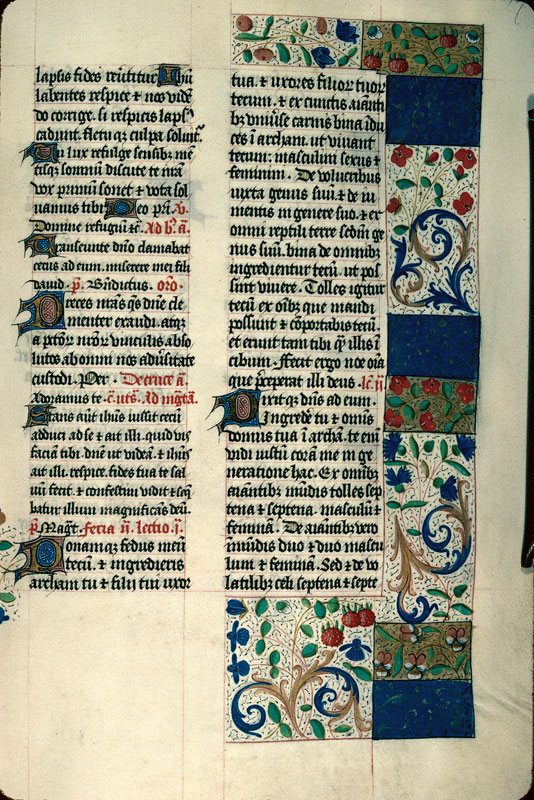 lapsus fides reuertitur Ihu
labentes respice et nos vidē
do corrige. si respicis lapsꝰ
cadunt. fletuqꝫ culpa soluitᷣ.
Tu lux refulge sensibꝫ mē
tisqꝫ somnū discute te n̄ra
vox primū sonet et vota sol
uamus tibi Deo pr̄i. ℣.
Domine refugiū ⁊c̄. Ad b̄. a.
Transeunte dn̄o clamabat
cecus ad eum. miserere mei fili
dauid. p̄. Bn̄dictus. or̄o.
Preces nr̄as qs̄ dn̄e cle
menter exaudi. atqꝫ
a pctōr nrōr vinculis abso
lutos ab omni nos aduersitate
custodi. Per. De cruce a.
Adoramus te c̄. vt s̄. Ad mag̅. a.
Stans aūt ihūs iussit cecū
adduci ad se ⁊ ait illi. quid vis
faciā tibi. dn̄e vt videā. ⁊ ihūs
ait illi. respice. fides tua te sal
uū fecit. ⁊ confestim vidit ⁊ seq̄
batur illum magnificās deū.
p̄ Mag̅t. Feria ii. lectio i.
Ponamqꝫ fedus meū
tecū. ⁊ ingredieris
archam tu ⁊ filii tui uxor
tua. ⁊ uxores filioꝝ tuoꝝ
tecum. ⁊ ex cunctis aīanti
bꝫ vniuīse carnis bina īdu
ces ī archam. ut viuant
tecum. masculini sexus ⁊
feminini. De volucribus
iuxta genus suū. ⁊ de iu
mentis in genere suo. ⁊ ex
omni reptili terre sedm̄ ge
nus suū. bina de omnibꝫ
ingredientur tecū. ut pos
sint viuere. Tolles igitur
tecū ex oībꝫ que mandi
possunt ⁊ cōportabis tecū.
⁊ erunt tam tibi qꝫ illis ī
cibum. ffecit ergo noe oīa
que p̄ceperat illi deus. lc̄. ii.
Dixitqꝫ dn̄s ad eum.
Ingrede tu ⁊ omīs
domus tua ī archā. te enī
vidi iustū corā me in ge
neratione hac. Ex omībꝫ
aīantibꝫ mūdis tolles sep
tena ⁊ septena. masculū ⁊
feminā. De aīantibꝫ vero
īmūdis duo ⁊ duo mascu
lum ⁊ feminā. Sed ⁊ de vo
latilibꝫ celi septena ⁊ septe